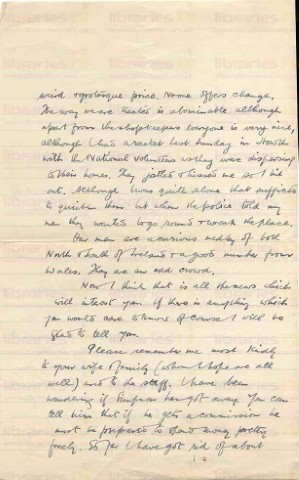 weird & grotesque price. No one offers change.
The way we are treated is abominable although
apart from the shopkeepers everyone is very nice,
although I had a racket last Sunday in Howth
with the National Volunteers as they were dispersing
to their homes. They jostled & hissed me so I hit
out. Although I was quite alone that sufficed
to quieten them but when the police told my
men they wanted to go round & wreck the place.
Our men are a curious medley of both
North & South of Ireland & a good number from
Wales. They are an odd crowd.
Now I think that is all the news which
will interest you. If there is anything which
you would care to know of course I will be
glad to tell you.
Please remember me most kindly
to your wife & family (whom I hope are all
well) and to the staff. I have been
wondering if Simpson has got away. You can
tell him that if he gets a commission he
must be prepared to spend money pretty
freely. So far I have got rid of about